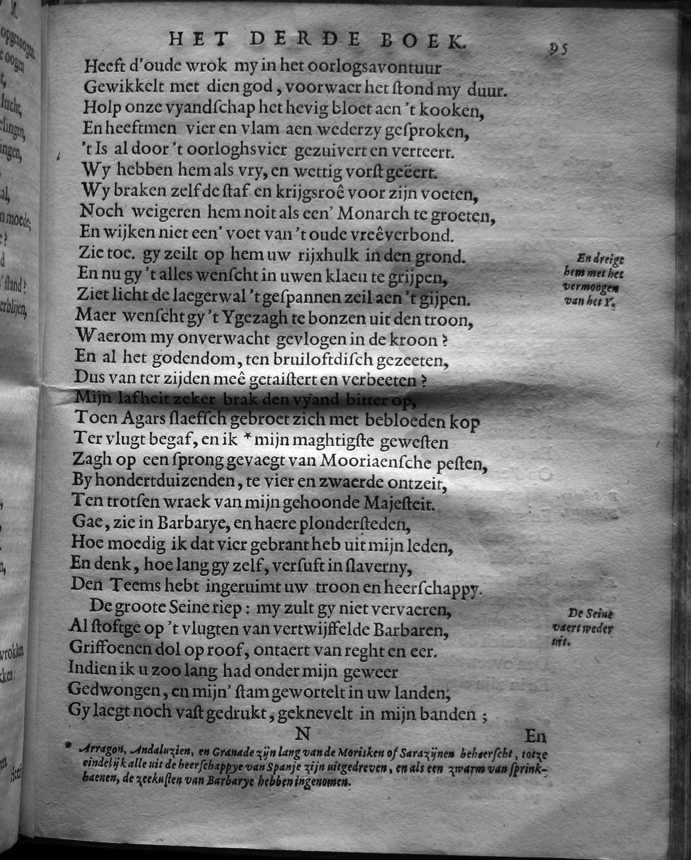 HET DERDE BOEK. 95
Heeft d'oude wrok my in het oorlogsavontuur
Gewikkelt met dien god, voorwaer het stond my duur.
Holp onze vyandschap het hevig bloet aen 't kooken,
En heeftmen vier en vlam aen wederzy gesproken,
't Is al door 't oorloghsvier gezuivert en verteert.
Wy hebben hem als vry, en wettig vorst geëert.
Wy braken zelf de staf en krijgsroê voor zijn voeten,
Noch weigeren hem noit als een' Monarch te groeten,
En wijken niet een' voet van 't oude vreêverbond.
Zie toe. gy zeilt op hem uw rijxhulk in den grond.
En nu gy 't alles wenscht in uwen klaeu te grijpen,
Ziet licht de laegerwal 't gespannen zeil aen 't gijpen.
Maer wenscht gy 't Ygezagh te bonzen uit den troon,
Waerom my onverwacht gevlogen in de kroon?
En al het godendom, ten bruiloftdisch gezeeten,
Dus van ter zijden meê getaistert en verbeeten?
Mijn lafheit zeker brak den vyand bitter op,
Toen Agars slaefsch gebroet zich met bebloeden kop
Ter vlugt begaf, en ik * mijn maghtigste gewesten
Zagh op een sprong gevaegt van Mooriaensche pesten,
By hondertduizenden, te vier en zwaerde ontzeit,
Ten trotsen wraek van mijn gehoonde Majesteit.
Gae, zie in Barbarye, en haere plondersteden,
Hoe moedig ik dat vier gebrant heb uit mijn leden,
En denk, hoe lang gy zelf, versuft in slaverny,
Den Teems hebt ingeruimt uw troon en heerschappy.
De groote Seine riep: my zult gy niet vervaeren,
Al stoftge op 't vlugten van vertwijffelde Barbaren,
Griffoenen dol op roof, ontaert van reght en eer.
Indien ik u zoo lang had onder mijn geweer
Gedwongen, en mijn' stam gewortelt in uw landen;
Gy laegt noch vast gedrukt, geknevelt in mijn banden;
N En
* Arragon, Andaluzien, en Granade zijn lang van de Morisken of Sarazijnen beheerscht, totze
eindelijk alle uit de heerschappye van Spanje zijn uitgedreven, en als een zwarm van sprink-
haenen, de zeekusten van Barbarye hebben ingenomen.
En dreigt
hem met het
vermoogen
van het Y.
De Seine
vaert weder
uit.